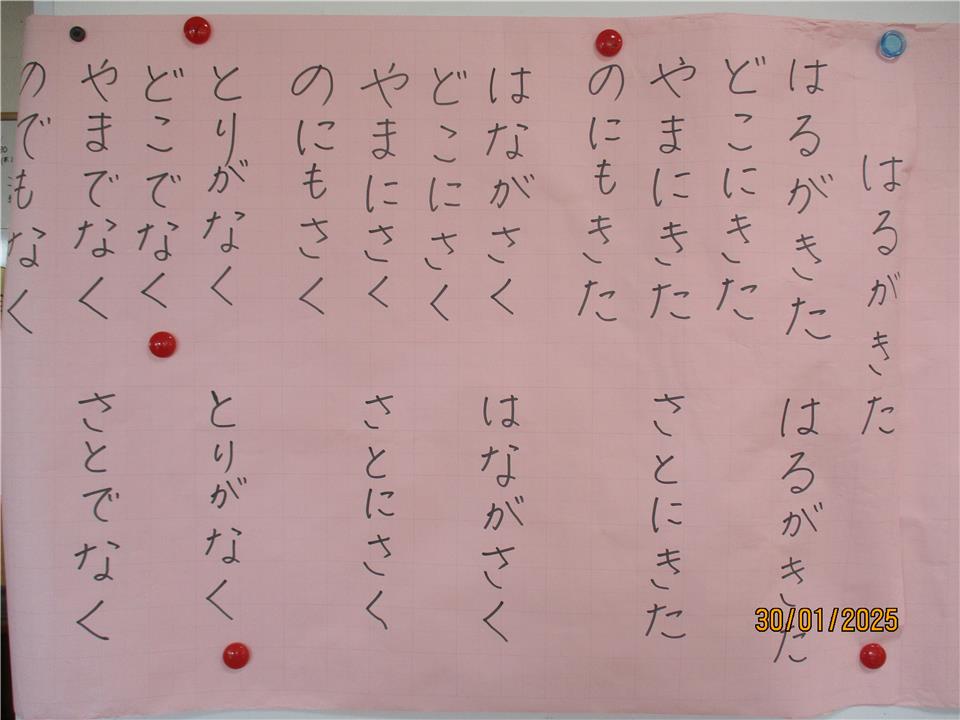 はるがきた
はるがきた はるがきた
どこにきた
やまにきた さとにきた
のにもきた
はながさく はながさく
どこにさく
やまにさく さとにさく
のにもさく
とりがなく とりがなく
どこでなく
やまでなく さとでなく
のでもなく
30/01/2025